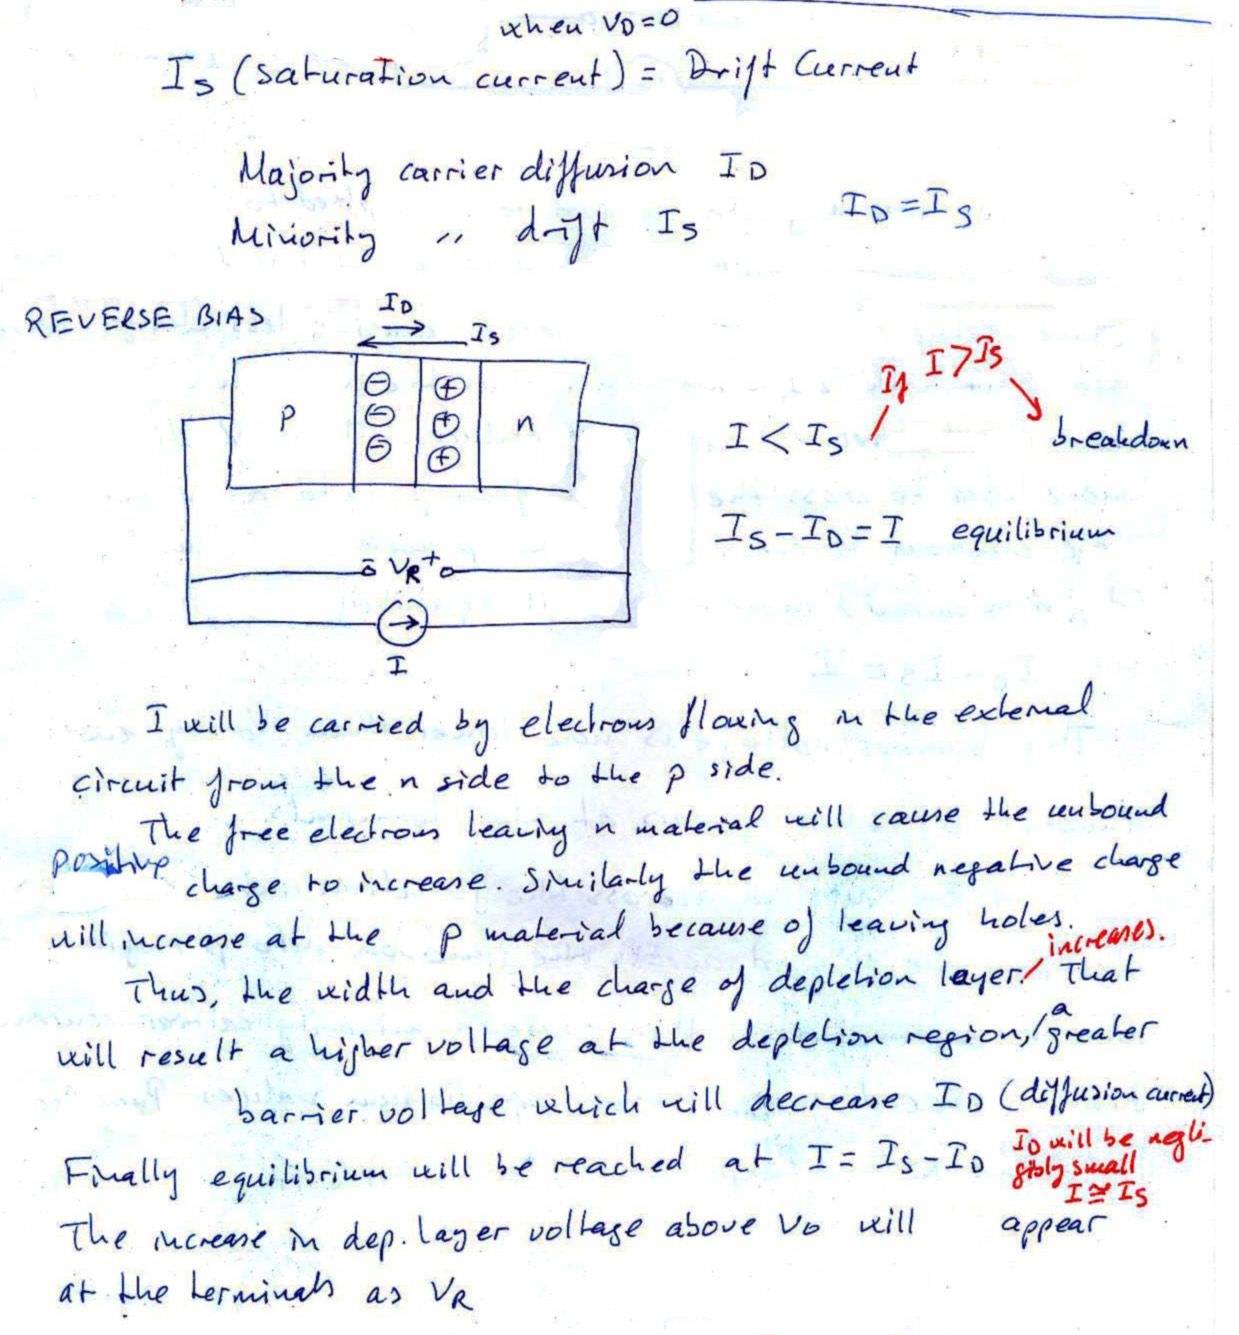 when VD=0
IS (saturation current) = Drift Current
Majority carrier diffusion ID
Minority 〃 drift IS
ID = IS
REVERSE BIAS
ID
IS
p
n
- VR +
I
If I > IS
I < IS
breakdown
IS - ID = I equilibrium
I will be carried by electrons flowing in the external
circuit from the n side to the p side.
The free electrons leaving n material will cause the unbound
positive charge to increase. Similarly the unbound negative charge
will increase at the p material because of leaving holes.
Thus, the width and the charge of depletion layer increases. That
will result a higher voltage at the depletion region, a greater
barrier voltage which will decrease ID (diffusion current)
Finally equilibrium will be reached at I = IS - ID
ID will be negli-
gibly small
I ≅ IS
The increase in dep. layer voltage above V0 will appear
at the terminals as VR